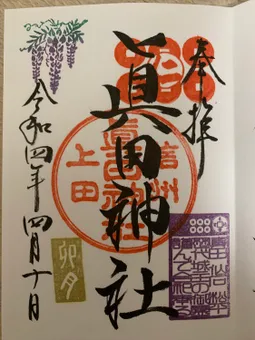 奉拝
眞田神社
信州
上田
卯月
令和四年四月十日